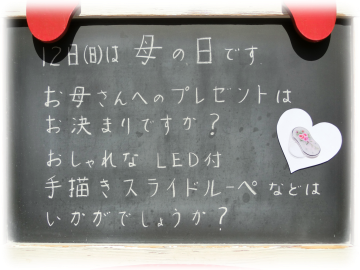 12日(日)は 母の日です
お母さんへのプレゼントは
お決まりですか？
おしゃれな LED付
手描きスライドルーペなどは
いかがでしょうか？